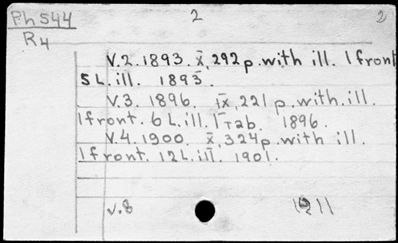 Ph 544 2 2
R4
V.2. 1893. x, 292 p. with ill. 1 front
5 L. ill. 1893.
V.3. 1896. ix, 221 p. with. ill.
1 front. 6 L. ill. 1 Tab. 1896.
V.4. 1900. x, 324 p. with ill.
1 front. 12 L. ill. 1901.
v.8